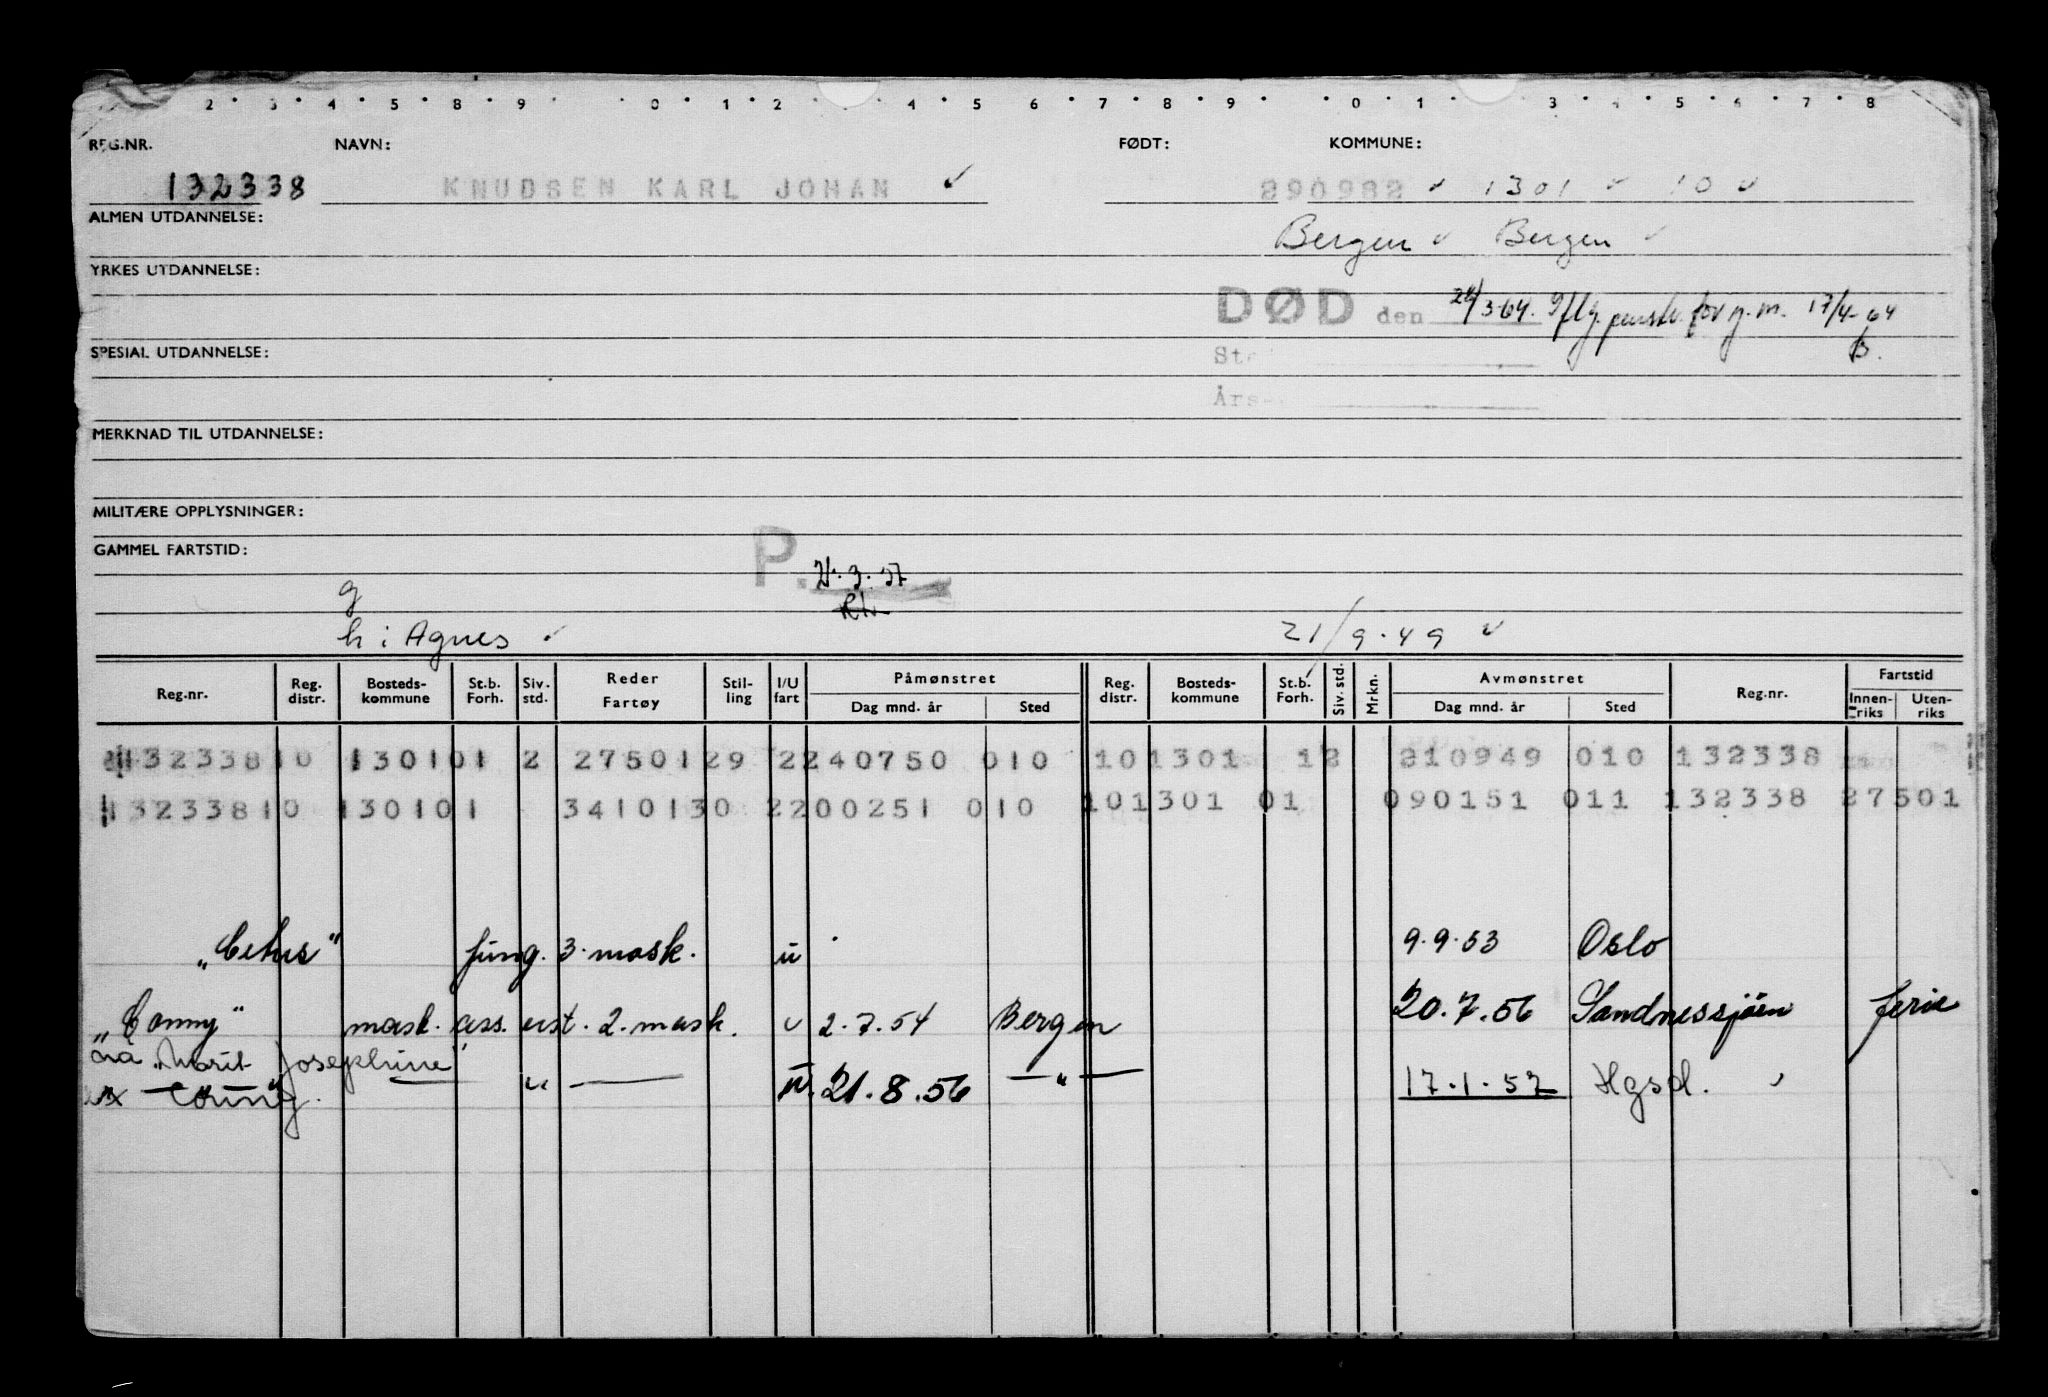 2 · 3 · 4 · 5 · 8 · 9 · 0 · 1 · 2 · 4 · 5 6 · 7 · 8 · 9 · 0 · 1 · 3 · 4 · 5 · 6 · 7 · 8
REG.NR. NAVN: FØDT: KOMMUNE:
132338 KNUDSEN KARL JOHAN ✓ 290982 ✓ 1301 ✓ 10 ✓
ALMEN UTDANNELSE: Bergen ✓ Bergen ✓
YRKES UTDANNELSE:
DØD den 24/3-64. for g.m. 17/4-64
B.
SPESIAL UTDANNELSE: St
Års-
MERKNAD TIL UTDANNELSE:
MILITÆRE OPPLYSNINGER:
GAMMEL FARTSTID: P. 21.3.57
g
h i Agnes ✓ 21/9.49 ✓
Reg.nr. Reg. distr. Bosteds-kommune St.b. Forh. Siv. std. Reder Fartøy Stil-ling I/U fart Påmønstret Dag mnd. år Sted Reg. distr. Bosteds-kommune St.b. Forh. Siv. std. Mrkn. Avmønstret Dag mnd. år Sted Reg.nr. Fartstid Innen-riks Uten-riks
13233810 130101 2 27501 29 2240750 010 101301 12 210949 010 132338
13233810 130101 34101 30 2200251 010 101301 01 090151 011 132338 27501
"Cetus" fung. 3. mask. u 9.9.53 Oslo
"Conny" mask. ass. eist. 2. mask. u 2.7.54 Bergen 20.7.56 Sandnessjöen ferie
nå "Marit Josephine" — " — u. 21.8.56 — " — 17.1.57 Hgsd.
ex Conny.